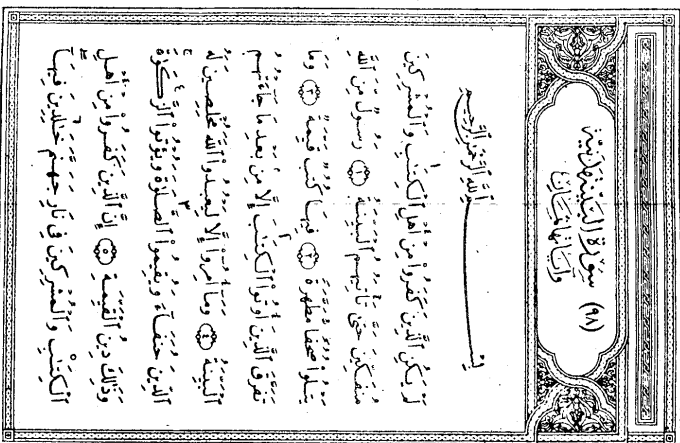 (٩٨) سورة البينة مدنية
وآياتها ثمان
بِسْمِ ٱللَّهِ ٱلرَّحْمَٰنِ ٱلرَّحِيمِ
لَمْ يَكُنِ ٱلَّذِينَ كَفَرُوا۟ مِنْ أَهْلِ ٱلْكِتَٰبِ وَٱلْمُشْرِكِينَ
مُنفَكِّينَ حَتَّىٰ تَأْتِيَهُمُ ٱلْبَيِّنَةُ ١ رَسُولٌ مِّنَ ٱللَّهِ
يَتْلُوا۟ صُحُفًا مُّطَهَّرَةً ٢ فِيهَا كُتُبٌ قَيِّمَةٌ ٣ وَمَا
تَفَرَّقَ ٱلَّذِينَ أُوتُوا۟ ٱلْكِتَٰبَ إِلَّا مِنۢ بَعْدِ مَا جَآءَتْهُمُ
ٱلْبَيِّنَةُ ٤ وَمَآ أُمِرُوٓا۟ إِلَّا لِيَعْبُدُوا۟ ٱللَّهَ مُخْلِصِينَ لَهُ
ٱلدِّينَ حُنَفَآءَ وَيُقِيمُوا۟ ٱلصَّلَوٰةَ وَيُؤْتُوا۟ ٱلزَّكَوٰةَ
وَذَٰلِكَ دِينُ ٱلْقَيِّمَةِ ٥ إِنَّ ٱلَّذِينَ كَفَرُوا۟ مِنْ أَهْلِ
ٱلْكِتَٰبِ وَٱلْمُشْرِكِينَ فِى نَارِ جَهَنَّمَ خَٰلِدِينَ فِيهَآ